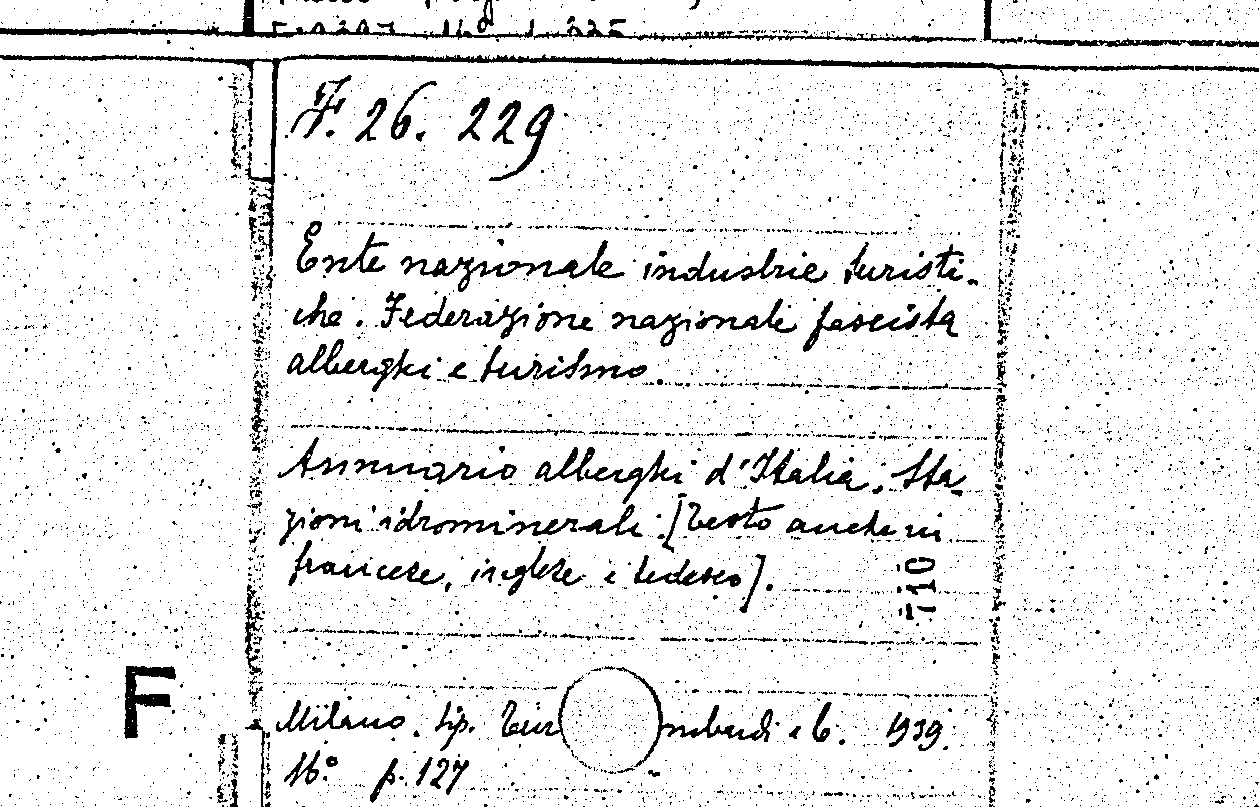 F. 26. 229
Ente nazionale industrie turisti-
che. Federazione nazionale fascista
alberghi e turismo.
Annuario alberghi d'Italia. Sta-
zioni idrominerali. [Testo anche in
francese, inglese e tedesco].
710
F
Milano. Tip. mbardi e C. 1939.
16.° p. 127